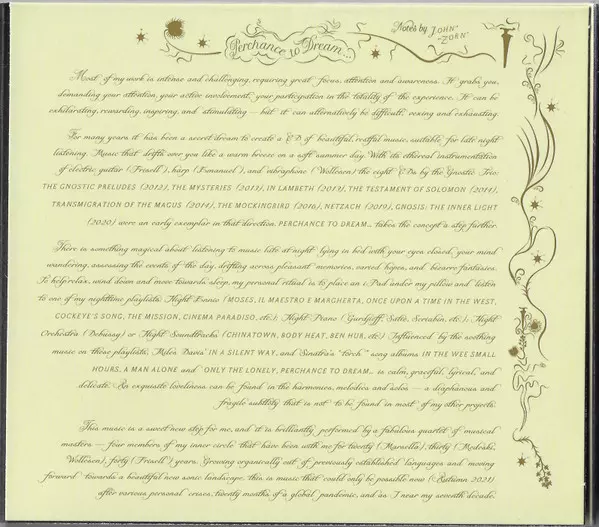 Perchance to Dream...
Notes by JOHN ZORN
Most of my work is intense and challenging, requiring great focus, attention and awareness. It grabs you,
demanding your attention, your active involvement, your participation in the totality of the experience. It can be
exhilarating, rewarding, inspiring, and stimulating — but it can alternatively be difficult, vexing and exhausting.
For many years it has been a secret dream to create a CD of beautiful, restful music, suitable for late night
listening. Music that drifts over you like a warm breeze on a soft summer day. With its ethereal instrumentation
of electric guitar (Frisell), harp (Emanuel), and vibraphone (Wollesen) the eight CDs by the Gnostic Trio:
THE GNOSTIC PRELUDES (2012), THE MYSTERIES (2013), IN LAMBETH (2013), THE TESTAMENT OF SOLOMON (2014),
TRANSMIGRATION OF THE MAGUS (2014), THE MOCKINGBIRD (2016), NETZACH (2019), GNOSIS: THE INNER LIGHT
(2020) were an early exemplar in that direction. PERCHANCE TO DREAM... takes the concept a step further.
There is something magical about listening to music late at night lying in bed with your eyes closed, your mind
wandering, assessing the events of the day, drifting across pleasant memories, varied hopes, and bizarre fantasies.
To help relax, wind down and move towards sleep, my personal ritual is to place an iPad under my pillow and listen
to one of my nighttime playlists: Night Ennio (MOSES, IL MAESTRO E MARGHERITA, ONCE UPON A TIME IN THE WEST,
COCKEYE'S SONG, THE MISSION, CINEMA PARADISO, etc.); Night Piano (Gurdjieff, Satie, Scriabin, etc.); Night
Orchestra (Debussy) or Night Soundtracks (CHINATOWN, BODY HEAT, BEN HUR, etc.) Influenced by the soothing
music on these playlists, Miles Davis' IN A SILENT WAY, and Sinatra's "torch" song albums IN THE WEE SMALL
HOURS, A MAN ALONE and ONLY THE LONELY, PERCHANCE TO DREAM... is calm, graceful, lyrical, and
delicate. An exquisite loveliness can be found in the harmonies, melodies and solos — a diaphanous and
fragile subtlety that is not to be found in most of my other projects.
This music is a sweet new step for me, and it is brilliantly performed by a fabulous quartet of musical
masters — four members of my inner circle that have been with me for twenty (Marsella), thirty (Medeski,
Wollesen), forty (Frisell) years. Growing organically out of previously established languages and moving
forward towards a beautiful new sonic landscape, this is music that could only be possible now (Autumn 2021)
after various personal crises, twenty months of a global pandemic, and as I near my seventh decade.